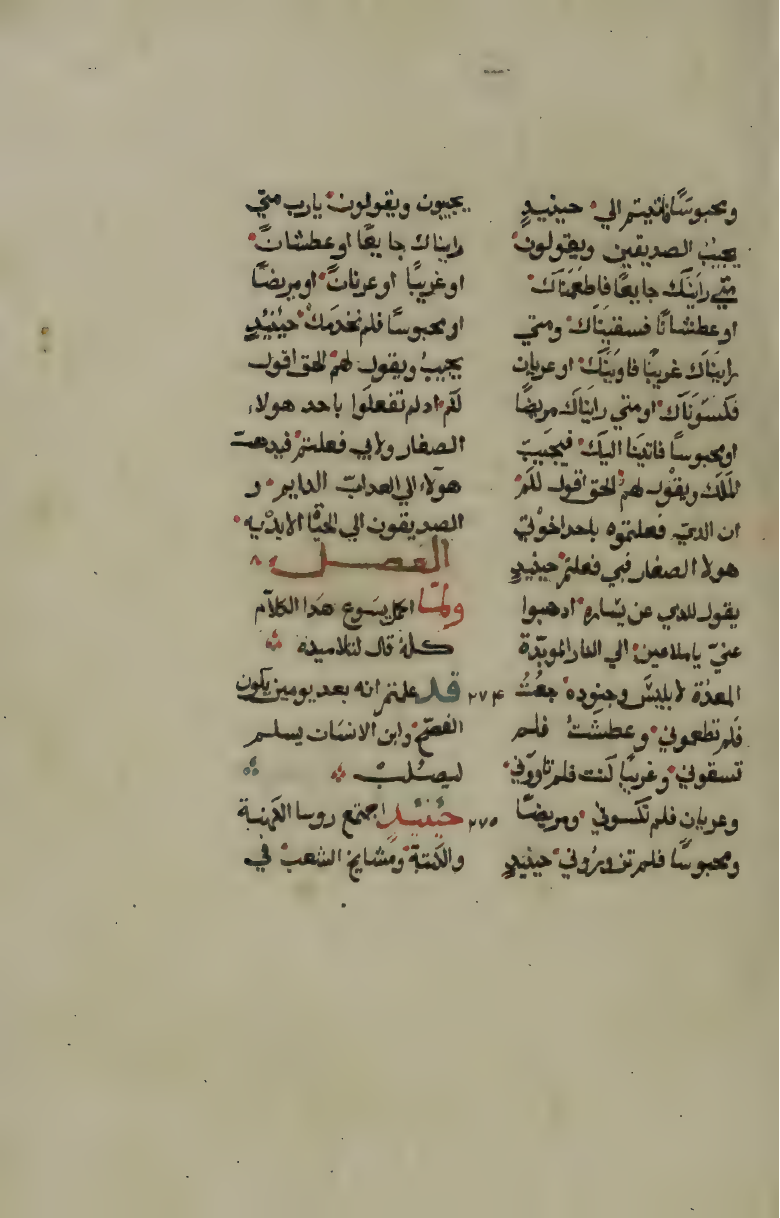 ومحبوسًا فاتيتم الي حينيدٍ
يجيبُ الصديقين ويقولون
متي رايَنَك جايعًا فاطعَمَناك
او عطشانًا فسقيَناك ومتي
رايَناك غريبًا فاوَيَنَك او عريان
فكسَوَناك او متي رايَناك مريضًا
او محبوسًا فاتيَنا اليَك فيجَيبَ
المَلَك ويقوُل لهمُ الحق اقول لكمَ
ان الذي فعلتموه باحد اخوتي
هولا الصغار فبي فعلتم حينيدٍ
يقول للذي عن يسَاره ادهبوا
عنيّ ياملاعين الي النار الموبّدة
المعدَة لابليسَ وجنوده جعتُ
فلَم تطعموني وعطشتُ فلم
تسقوني وغريبًا كنت فلم تاوونيَ
وعريان فلم تكَسوني ومريضًا
ومحبوسًا فلم تزوروني حينيدٍ
يجيبون ويقولون يارب متيّ
رايناك جايعًا او عطشانً
او غريبًا او عريانً او مريضًا
او محبوسًا فلم نخدمَك حينيدٍ
يجيبُ ويقول لهمَ الحق اقول
لكم اد لم تفعلَوا باحد هولاء
الصغار ولابي فعلتم فيدهبَ
هولاء الي العداب الدايم و
الصديقون الي الحيَاة الابديه
الفصل ٨٠
ولمّا اكمل يسَوع هدا الكلام
كلهَ قال لتلاميده
٢٧٤ قد علمتم انه بعد يومين يكون
الفصّح وابن الانسَان يسلم
ليصَلبَ
٢٧٥ حينيدٍ اجتمع روسا الكهنة
والكتبةَ ومشَايخ الشعبَ في